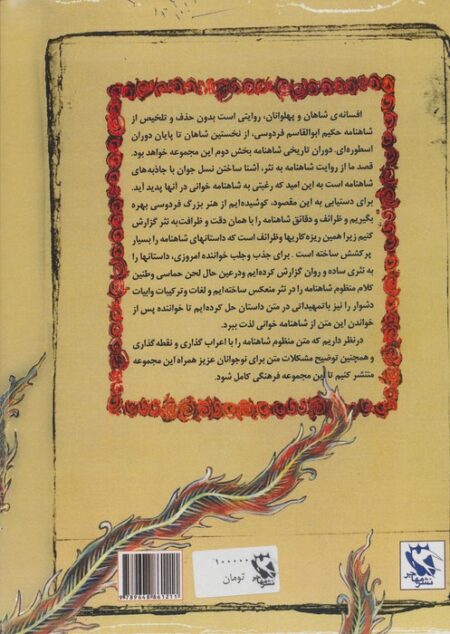 افسانه‌ی شاهان و پهلوانان، روایتی است بدون حذف و تلخیص از
شاهنامه حکیم ابوالقاسم فردوسی، از نخستین شاهان تا پایان دوران
اسطوره‌ای. دوران تاریخی شاهنامه بخش دوم این مجموعه خواهد بود.
قصد ما از روایت شاهنامه به نثر، آشنا ساختن نسل جوان با جاذبه‌های
شاهنامه است به این امید که رغبتی به شاهنامه خوانی در آنها پدید آید.
برای دستیابی به این مقصود، کوشیده‌ایم از هنر بزرگ فردوسی بهره
بگیریم و ظرائف و دقائق شاهنامه را با همان دقت و ظرافت به نثر گزارش
کنیم زیرا همین ریزه کاریها و ظرائف است که داستانهای شاهنامه را بسیار
پرکشش ساخته است. برای جذب و جلب خواننده امروزی، داستانها را
به نثری ساده و روان گزارش کرده‌ایم و درعین حال لحن حماسی وطنین
کلام منظوم شاهنامه را در نثر منعکس ساخته‌ایم و لغات و ترکیبات وابیات
دشوار را نیز باتمهیداتی در متن داستان حل کرده‌ایم تا خواننده پس از
خواندن این متن از شاهنامه خوانی لذت ببرد.
درنظر داریم که متن منظوم شاهنامه را با اعراب گذاری و نقطه گذاری
و همچنین توضیح مشکلات متن برای نوجوانان عزیز همراه این مجموعه
منتشر کنیم تا این مجموعه فرهنگی کامل شود.
۱۰۰۰۰۰
تومان
نشر مهاجر
9 789648 861211